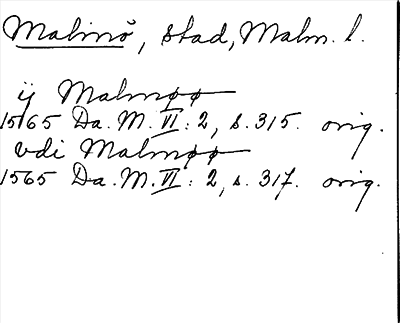 Malmö, stad, Malm. l.
ij Malmøø
1565 Da. M. VI: 2, s. 315. orig.
vdi Malmøø
1565 Da. M. VI: 2, s. 317. orig.